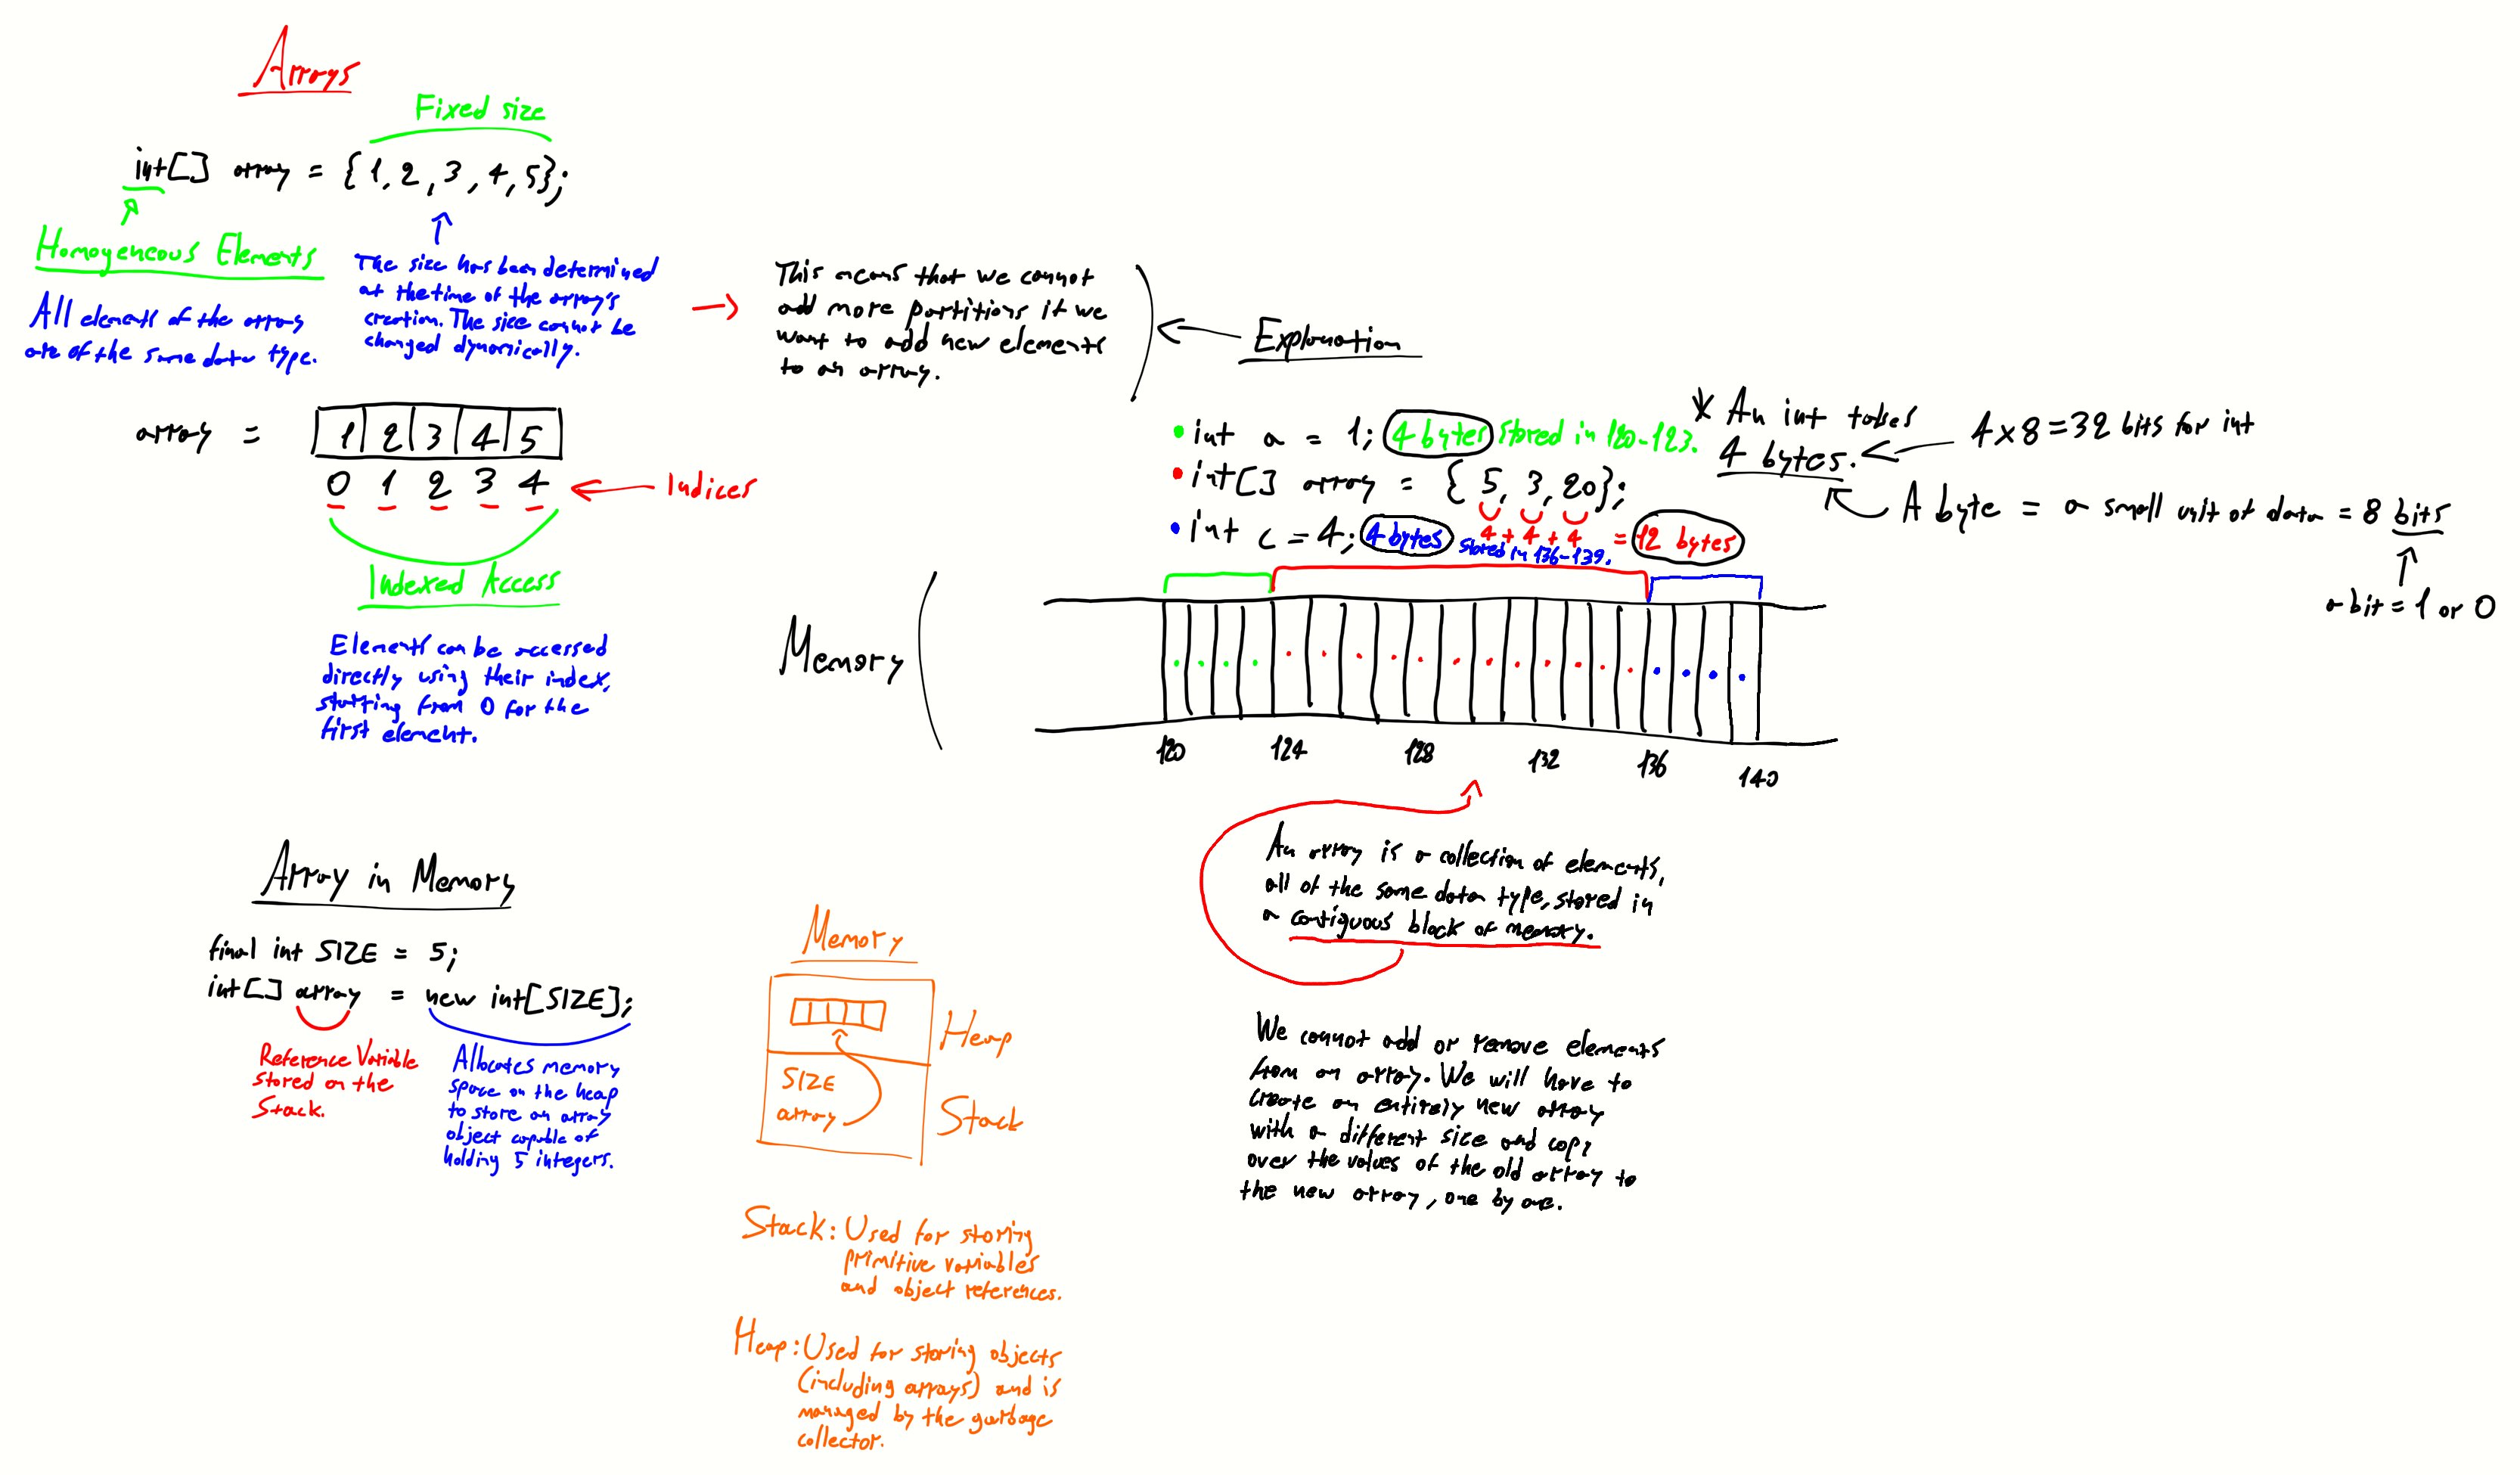 Arrays
Fixed size
int[] array = {1, 2, 3, 4, 5};
Homogeneous Elements
All elements of the array
are of the same data type.
The size has been determined
at the time of the array's
creation. The size cannot be
changed dynamically.
This means that we cannot
add more partitions if we
want to add new elements
to an array.
Explanation
array = 1 2 3 4 5
0 1 2 3 4
Indices
Indexed Access
Elements can be accessed
directly using their index,
starting from 0 for the
first element.
int a = 1; 4 bytes stored in 120-123.
int[] array = { 5, 3, 20};
4 + 4 + 4 = 12 bytes
int c = 4; 4 bytes stored in 136-139.
* An int takes
4 bytes.
4 x 8 = 32 bits for int
A byte = a small unit of data = 8 bits
a bit = 1 or 0
Memory
120 124 128 132 136 140
An array is a collection of elements,
all of the same data type, stored in
a contiguous block of memory.
We cannot add or remove elements
from an array. We will have to
create an entirely new array
with a different size and copy
over the values of the old array to
the new array, one by one.
Array in Memory
final int SIZE = 5;
int[] array = new int[SIZE];
Reference Variable
stored on the
Stack.
Allocates memory
space on the heap
to store an array
object capable of
holding 5 integers.
Memory
Heap
SIZE
array
Stack
Stack: Used for storing
primitive variables
and object references.
Heap: Used for storing objects
(including arrays) and is
managed by the garbage
collector.